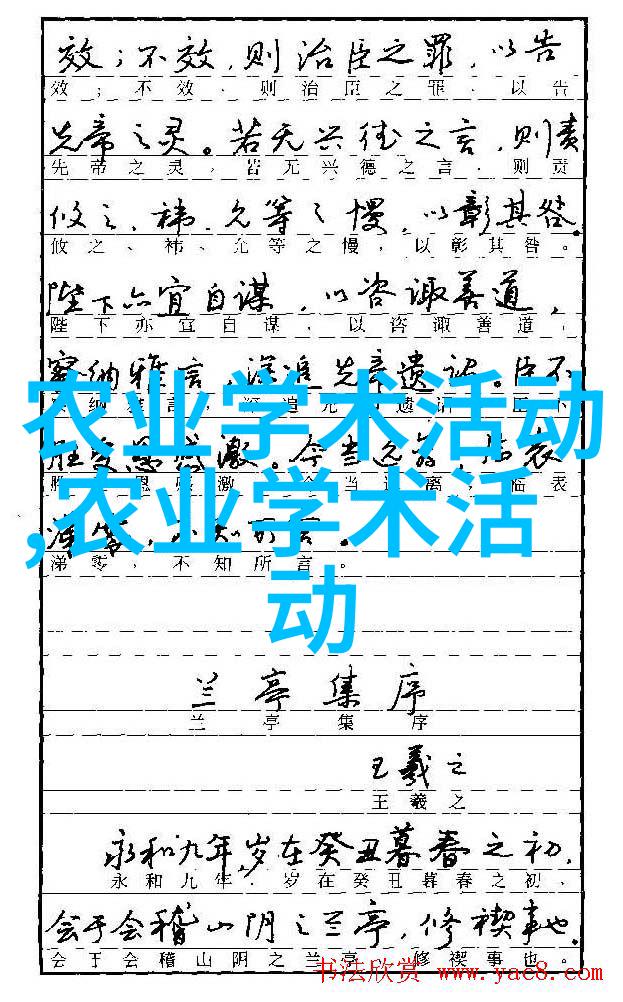 效；不效，则治臣之罪，以告
效；不效、则治臣之罪、以告
先帝之灵。若无兴德之言，则责
先帝之灵，若无兴德之言，则责
攸之、祎、允等之慢，以彰其咎。
攸之、祎、允等之慢，以彰其咎。
陛下亦宜自谋，以咨诹善道，
陛下亦宜自谋，以咨诹善道，
察纳雅言，深追先帝遗诏。臣不
农业学术活动
胜受恩感激。今当远离，临表
,农业学术活
涕零，不知所言。
涕零，不知所言。
动
兰亭集序
兰亭集序
王羲之
王羲之
永和九年，岁在癸丑暮春之初，
永和九年，岁在癸丑暮春之初、
会于会稽山阴之兰亭，修禊事也。
会于会稽山阴之兰亭，修禊事也。
书法欣赏 www.yac8.com